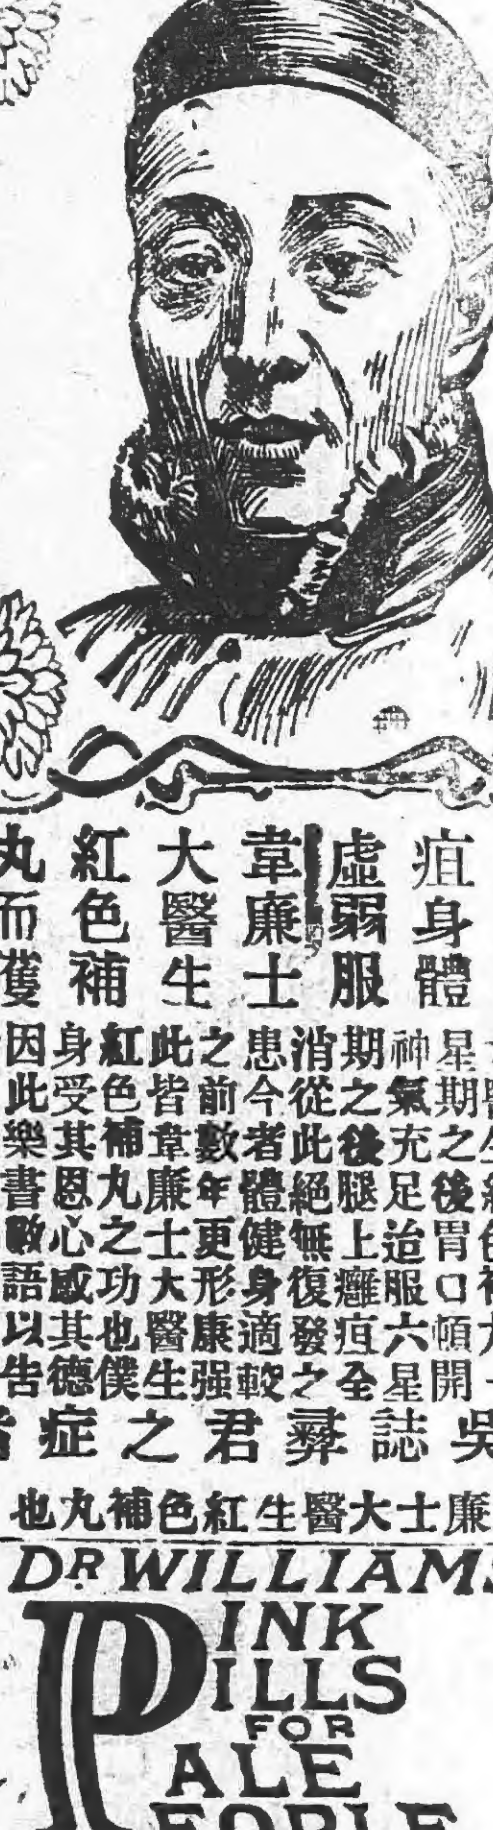 疽身體
虛弱服
韋廉士
大醫生
紅色補
丸而獲
星期之後胃口頓開
神氣充足迨服六星
期之後腿上癰疽全
消從此絕無復發之
患今者體健身適較
之前數年更形康强
此皆韋廉士大醫生
紅色補丸之功也僕
身受其恩心感其德
因此樂書數語以告
吳誌彝君之症
廉士大醫生紅色補丸也
DR WILLIAMS
PINK
PILLS
FOR
PALE
PEOPLE